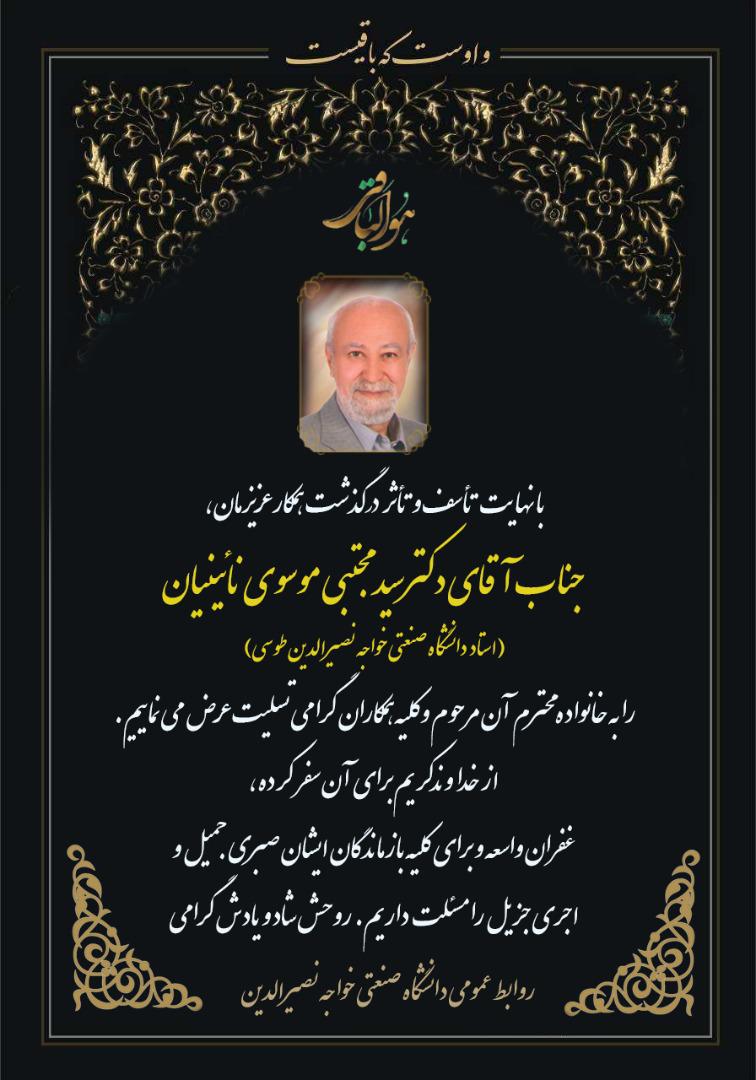 و اوست که باقیست
هوالباقی
با نهایت تأسف و تأثر درگذشت همکار عزیزمان،
جناب آقای دکتر سید مجتبی موسوی نائینیان
(استاد دانشگاه صنعتی خواجه نصیرالدین طوسی)
را به خانواده محترم آن مرحوم و کلیه همکاران گرامی تسلیت عرض می نماییم .
از خداوند کریم برای آن سفر کرده ،
غفران واسعه و برای کلیه بازماندگان ایشان صبری جمیل و
اجری جزیل را مسئلت داریم . روحش شاد و یادش گرامی
روابط عمومی دانشگاه صنعتی خواجه نصیرالدین